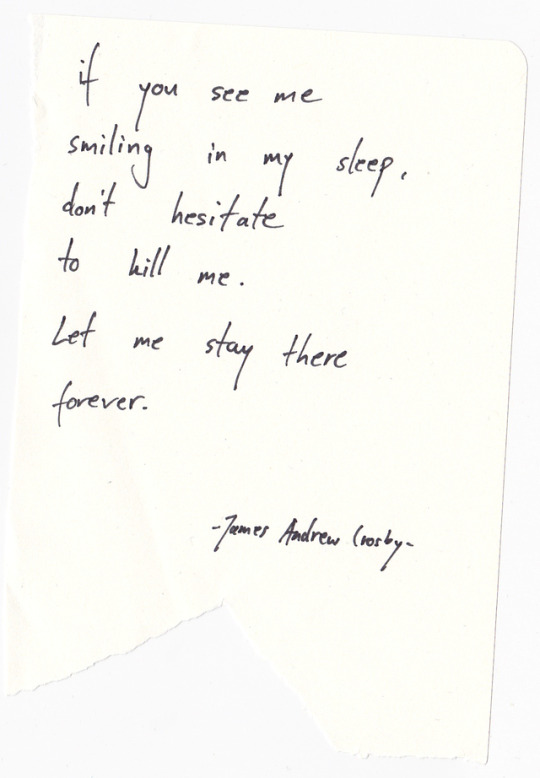 if you see me
smiling in my sleep,
don't hesitate
to kill me.
Let me stay there
forever.
-James Andrew Crosby-